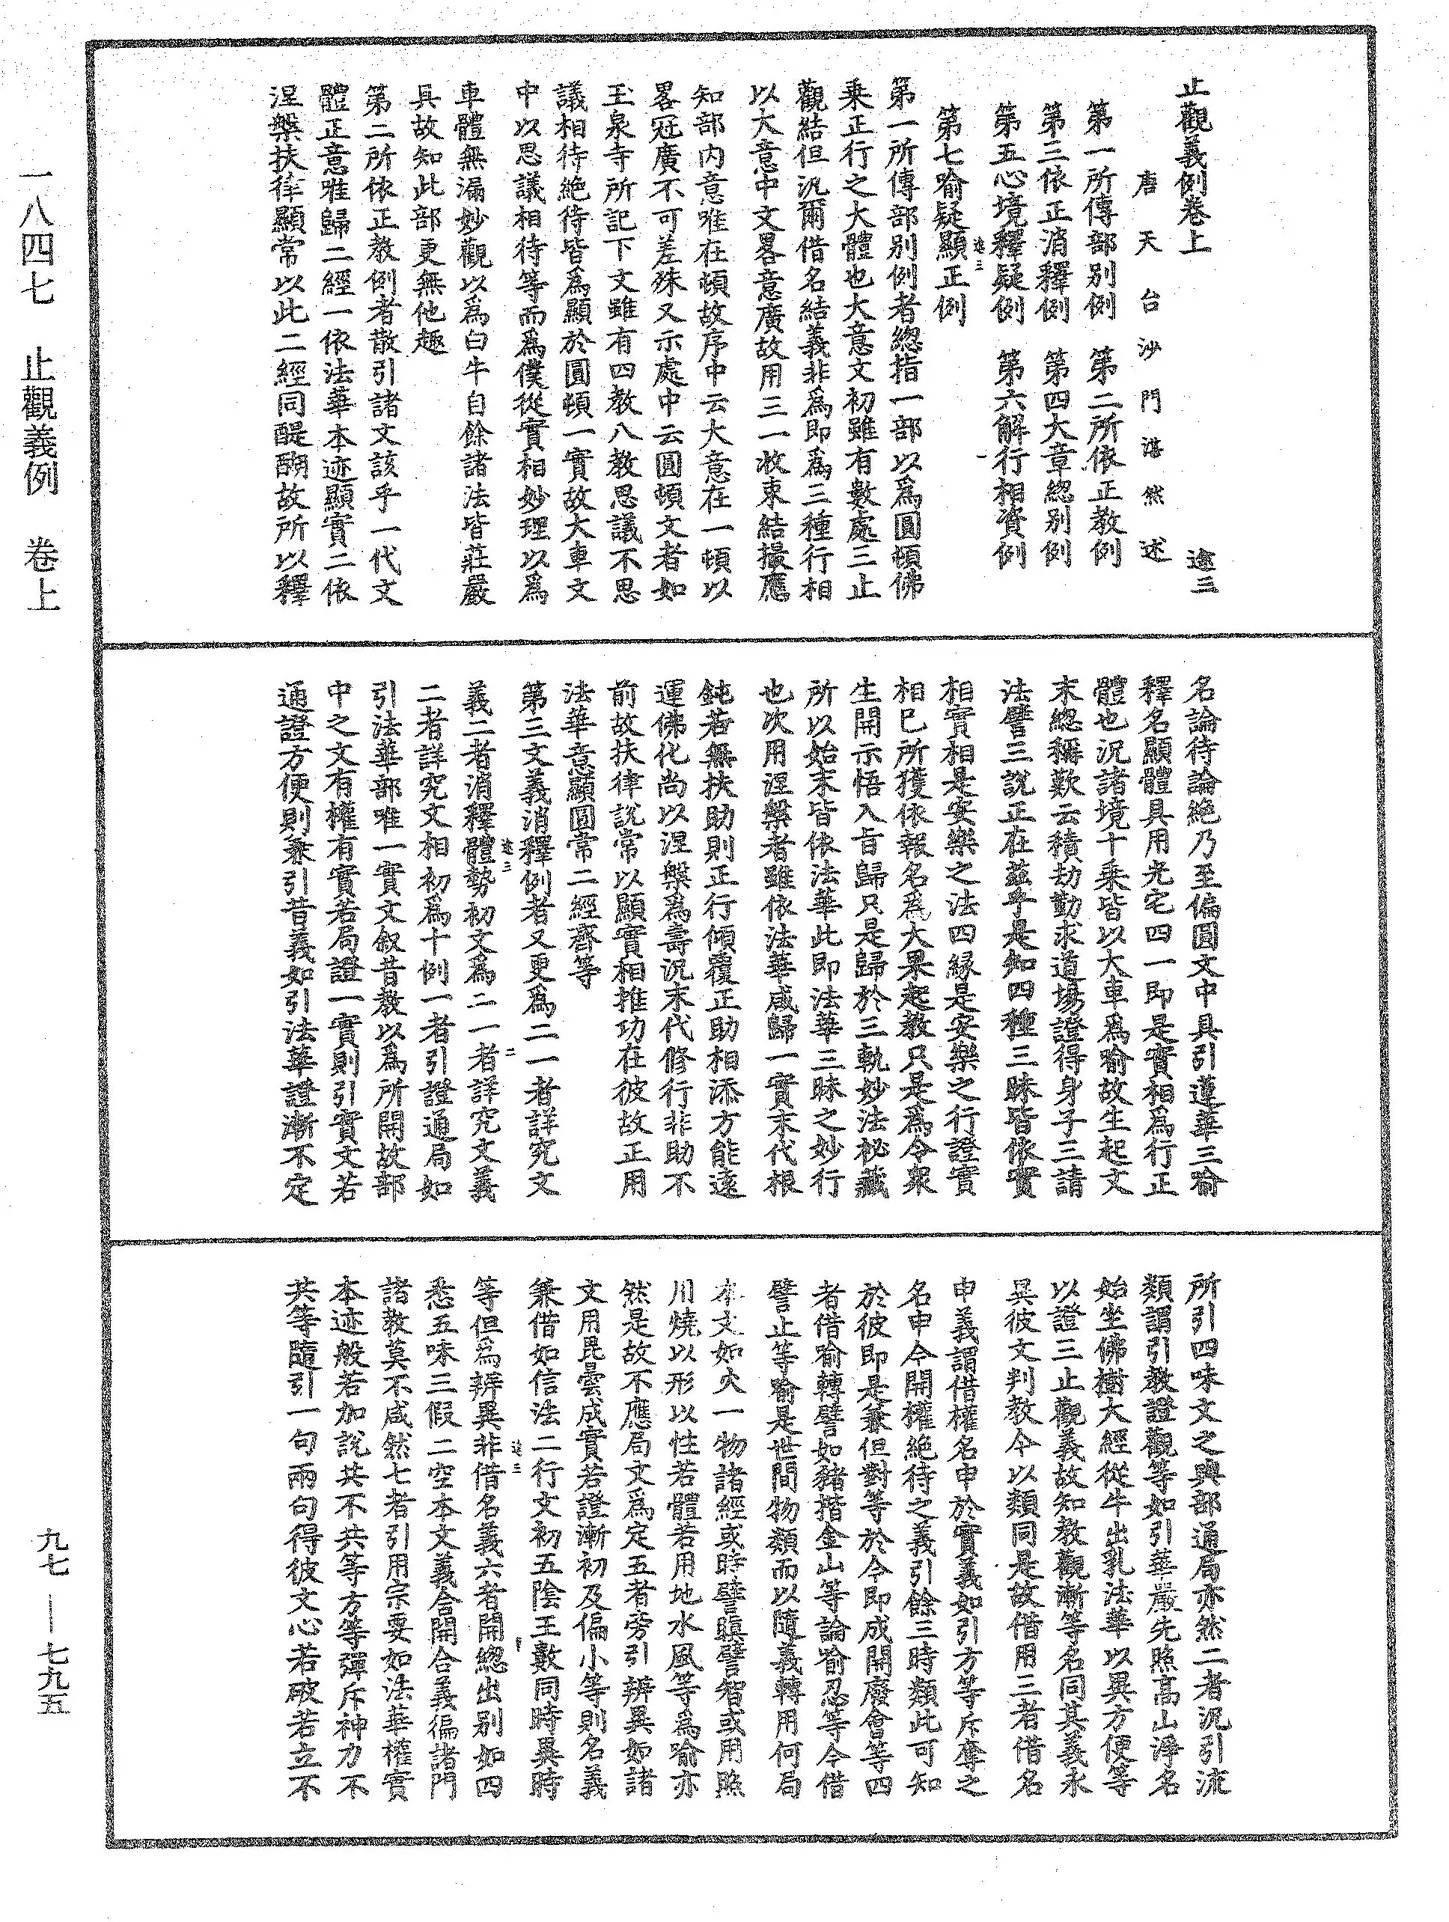 止觀義例卷上
途三
唐天台沙門湛然述
第一所傳部別例　第二所依正教例
第三依正消釋例　第四大章總別例
第五心境釋疑例　第六解行相資例
第七喻疑顯正例
途三
第一所傳部別例者總指一部以爲圓頓佛
乘正行之大體也大意文初雖有數處三止
觀結但汎爾借名結義非爲即爲三種行相
以大意中文畧意廣故用三一收束結撮應
知部内意唯在頓故序中云大意在一頓以
畧冠廣不可差殊又示處中云圓頓文者如
玉泉寺所記下文雖有四教八教思議不思
議相待絶待皆爲顯於圓頓一實故大車文
中以思議相待等而爲僕從實相妙理以爲
車體無漏妙觀以爲白牛自餘諸法皆莊嚴
具故知此部更無他趣
第二所依正教例者散引諸文該乎一代文
體正意唯歸二經一依法華本迹顯實二依
涅槃扶律顯常以此二經同醍醐故所以釋
名論待論絶乃至偏圓文中具引蓮華三喻
釋名顯體具用光宅四一即是實相爲行正
體也況諸境十乘皆以大車爲喻故生起文
末總稱歎云積劫勤求道場證得身子三請
法譬三說正在茲乎是知四種三昧皆依實
相實相是安樂之法四緣是安樂之行證實
相已所獲依報名爲大果起教只是爲令衆
生開示悟入旨歸只是歸於三軌妙法祕藏
所以始末皆依法華此即法華三昧之妙行
也次用涅槃者雖依法華咸歸一實末代根
鈍若無扶助則正行傾覆正助相添方能遠
運佛化尚以涅槃爲壽況末代修行非助不
前故扶律說常以顯實相推功在彼故正用
法華意顯圓常二經齊等
第三文義消釋例者又更爲二一者詳究文
途三　二
義二者消釋體勢初文爲二一者詳究文義
二者詳究文相初爲十例一者引證通局如
引法華部唯一實文叙昔教以爲所開故部
中之文有權有實若局證一實則引實文若
通證方便則兼引昔義如引法華證漸不定
所引四味文之與部通局亦然二者況引流
類謂引教證觀等如引華嚴先照高山淨名
始坐佛樹大經從牛出乳法華以異方便等
以證三止觀義故知教觀漸等名同其義永
異彼文判教今以類同是故借用三者借名
申義謂借權名申於實義如引方等斥奪之
名申今開權絶待之義引餘三時類此可知
於彼即是兼但對等於今即成開廢會等四
者借喻轉譬如豬揩金山等論喻忍等今借
譬止等喻是世間物類而以隨義轉用何局
本文如火一物諸經或時譬瞋譬智或用照
川燒以形以性若體若用地水風等爲喻亦
然是故不應局文爲定五者旁引辨異如諸
文用毘曇成實若證漸初及偏小等則名義
兼借如信法二行文初五陰王數同時異時
途三
等但爲辨異非借名義六者開總出別如四
悉五味三假二空本文義含開合義徧諸門
諸教莫不咸然七者引用宗要如法華權實
本迹般若加說共不共等方等彈斥神力不
共等隨引一句兩句得彼文心若破若立不
一八四七　止觀義例　卷上
九七—七九五